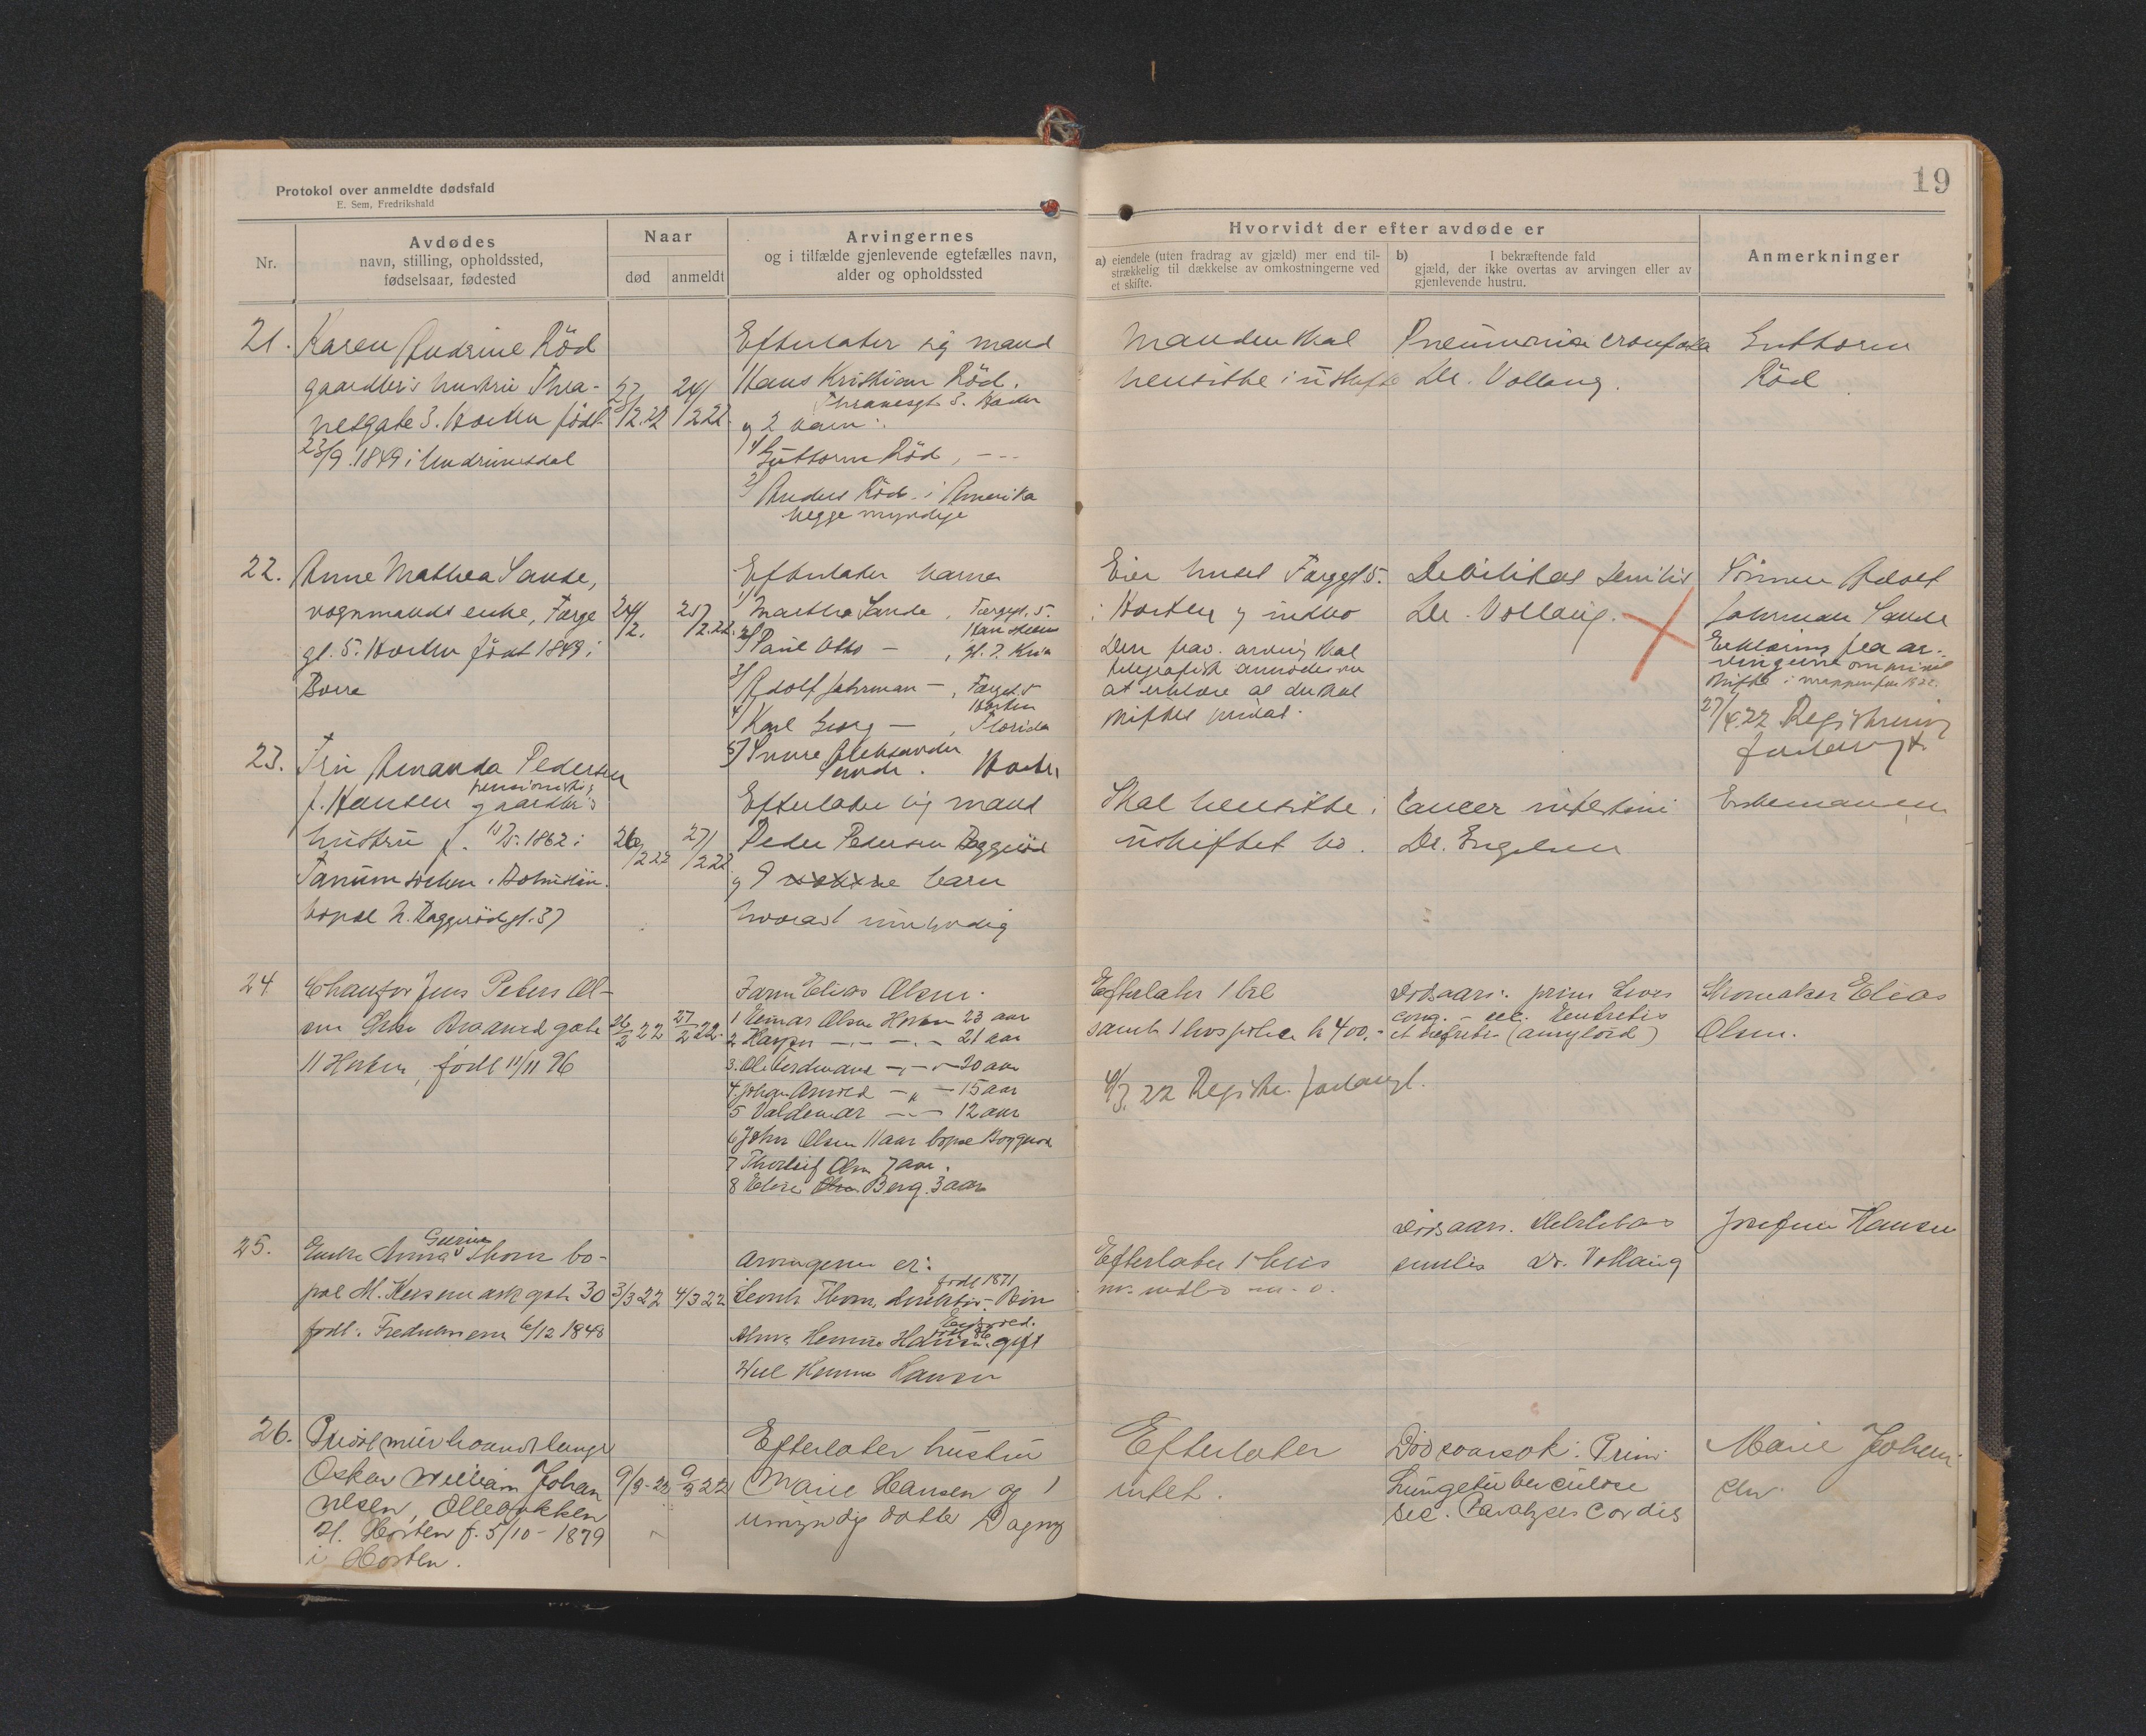 Protokol over anmeldte dødsfald
E. Sem, Fredrikshald
19
Nr.
Avdødes
navn, stilling, opholdssted,
fødselsaar, fødested
Naar
død
anmeldt
Arvingernes
og i tilfælde gjenlevende egtefælles navn,
alder og opholdssted
Hvorvidt der efter avdøde er
a) eiendele (uten fradrag av gjæld) mer end til-
strækkelig til dækkelse av omkostningerne ved
et skifte.
b) I bekræftende fald
gjæld, der ikke overtas av arvingen eller av
gjenlevende hustru.
Anmerkninger
21.
Karen Andrine Röd
gaardbr.s hustru Thra-
nesgate 3. Horten født
23/9.1849 i Undrumsdal
23/2.22
24/2 22.
Efterlater sig mand
Hans Kristian Röd.
Thranesgt 3. Horten
og 2 barn:
1/ Guttorm Röd, - --
2/ Anders Röd. i Amerika
begge myndige
Manden skal
hensitte i uskifte
Pneumonia crouposa
Dr. Vollaug.
Guttorm
Röd
22.
Anne Mathea Sande,
vognmands enke, Farge
gt. 5. Horten født 1849 i
Borre
24/2.
25/2.22.
Efterlater barna
1/ Martha Sande, Fargegt. 5.
Horten
2/ Paul Otto -
3/ Adolf Fahrman -, Fargegt. 5
Horten
4/ Karl Georg -, Florida
5/ Aleksander
Sande. Horten
Eier huset Fargegt 5.
i Horten og indbo
Den frav. arving skal
telegrafisk anmodes om
at erklære at der skal
skiftes privat.
Debilitas senilis
Dr. Vollaug.
Sönnen Adolf
Fahrman Sande
Erklæring fra ar-
vingerne om privat
skifte i mappen for 1922.
27/4 22 Registrering
forlangt.
23.
Fru Amanda Pedersen
f. Hansen pensionist og
gaardbr.s
hustru f. 1862 i
Tanum sokn i Bohuslän.
bopæl N. Baggerödgt. 37
26/2 22
27/2 22
Efterlater sig mand
Peder Pedersen Baggeröd
og 9 barn
hvorav 1 umyndig
Skal hensitte i
uskiftet bo.
Cancer intestini
Dr. Engelsen
Enkemannen
24
Chauffør Jens Peters Ol-
sen
11 Horten, født 11/11 96
26/2 22
27/2 22.
Farm Elias Olsen.
1 Einar Olsen Horten 23 aar
2 Harpen -.- -.- 21 aar
3. Ole Ferdinand -.- 20 aar
4. Johan Arnold -.- 15 aar
5 Valdemar -.- 12 aar
6 John Olsen 11 aar bopæl Boggerød
7 Thorleif Olsen 7 aar.
8 Elise Berg. 3 aar
Efterlater 1 bil
samt 1 hus kr 400.-
4/3. 22 Registr. forlangt.
Dødsaars. prim
cong. - sec. Enteritis
et nefritis (amyloid)
Skomaker Elias
Olsen.
25.
Enke Anna Gurine Thom bo-
pæl M. gate 30
født i Fredriksværn 6/12 1848
3/3 22
4/3 22
Arvingene er:
født 1871
Thom, direktør.
Alma Hemme Hansen gift
Hansen
Efterlater 1 hus
m. indbo m. v.
Dødsaars. Debilitas
senilis Dr. Vollaug
Josefine Hansen
26.
murhaandlanger
Oskar William Johan
nesen, Ollebakken
21. Horten f. 5/10 - 1879
i Horten.
9/3-22
9/3 22
Efterlater hustru
Marie Hansen og 1
umyndig datter Dagny
Efterlater
intet.
Dödsaarsak: Prim.
Lungetuberculose
sec. Paralyses Cordis
Marie Johan-